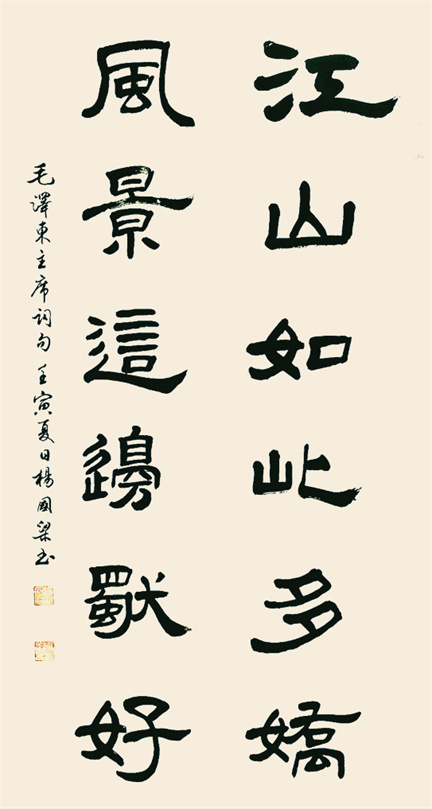 江山如此多嬌
風景這邊獨好
毛澤東主席詞句壬寅夏日楊國梁书